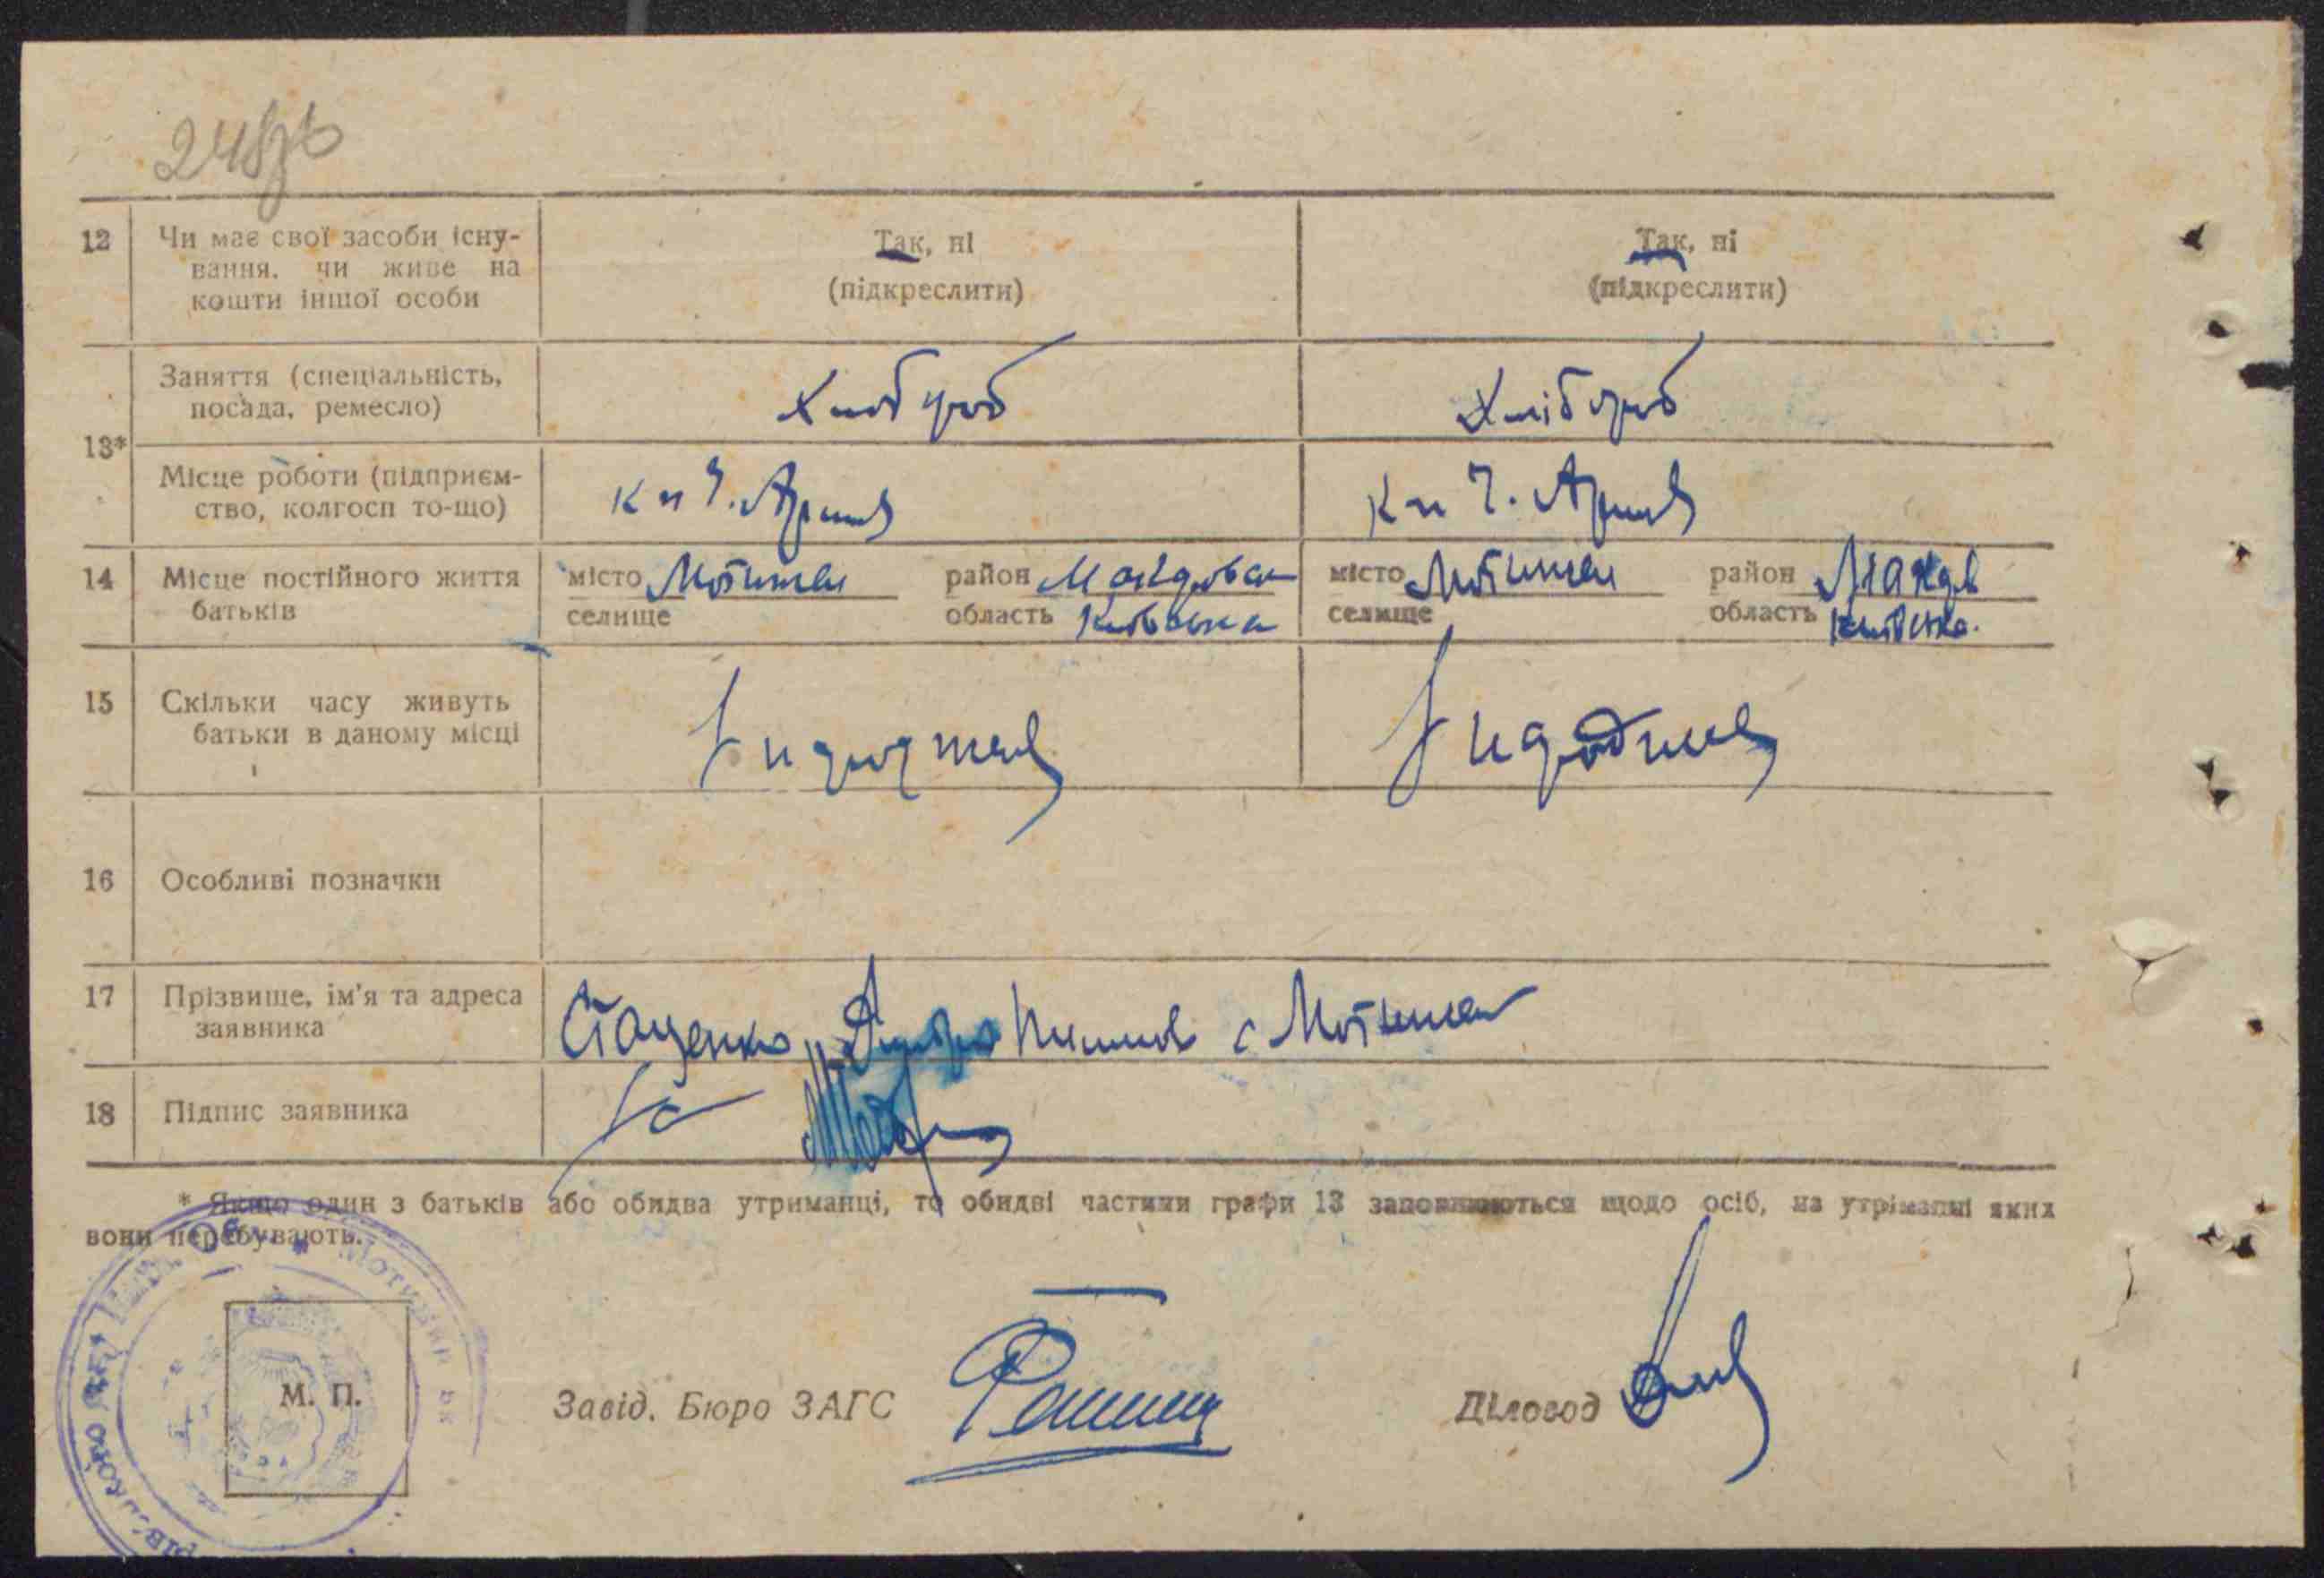 248зв
12 Чи має свої засоби існу-
вання, чи живе на
кошти іншої особи
Так, ні
(підкреслити)
Так, ні
(підкреслити)
13*
Заняття (спеціальність,
посада, ремесло)
Хлібороб
Хлібороб
Місце роботи (підприєм-
ство, колгосп то-що)
к-п Ч. Армії
к-п Ч. Армії
14 Місце постійного життя
батьків
місто Мотижин район Макарівськ
селище область Київська
місто Мотижин район Макарів
селище область Київська
15 Скільки часу живуть
батьки в даному місці
З народження
З народження
16 Особливі позначки
17 Прізвище, ім'я та адреса
заявника
Стаценко с Мотижин
18 Підпис заявника
* Якщо один з батьків або обидва утриманці, то обидві частини графи 13 заповнюються щодо осіб, на утріманні яких
вони перебувають.
Мотижинськ
М. П.
Завід. Бюро ЗАГС
Діловод